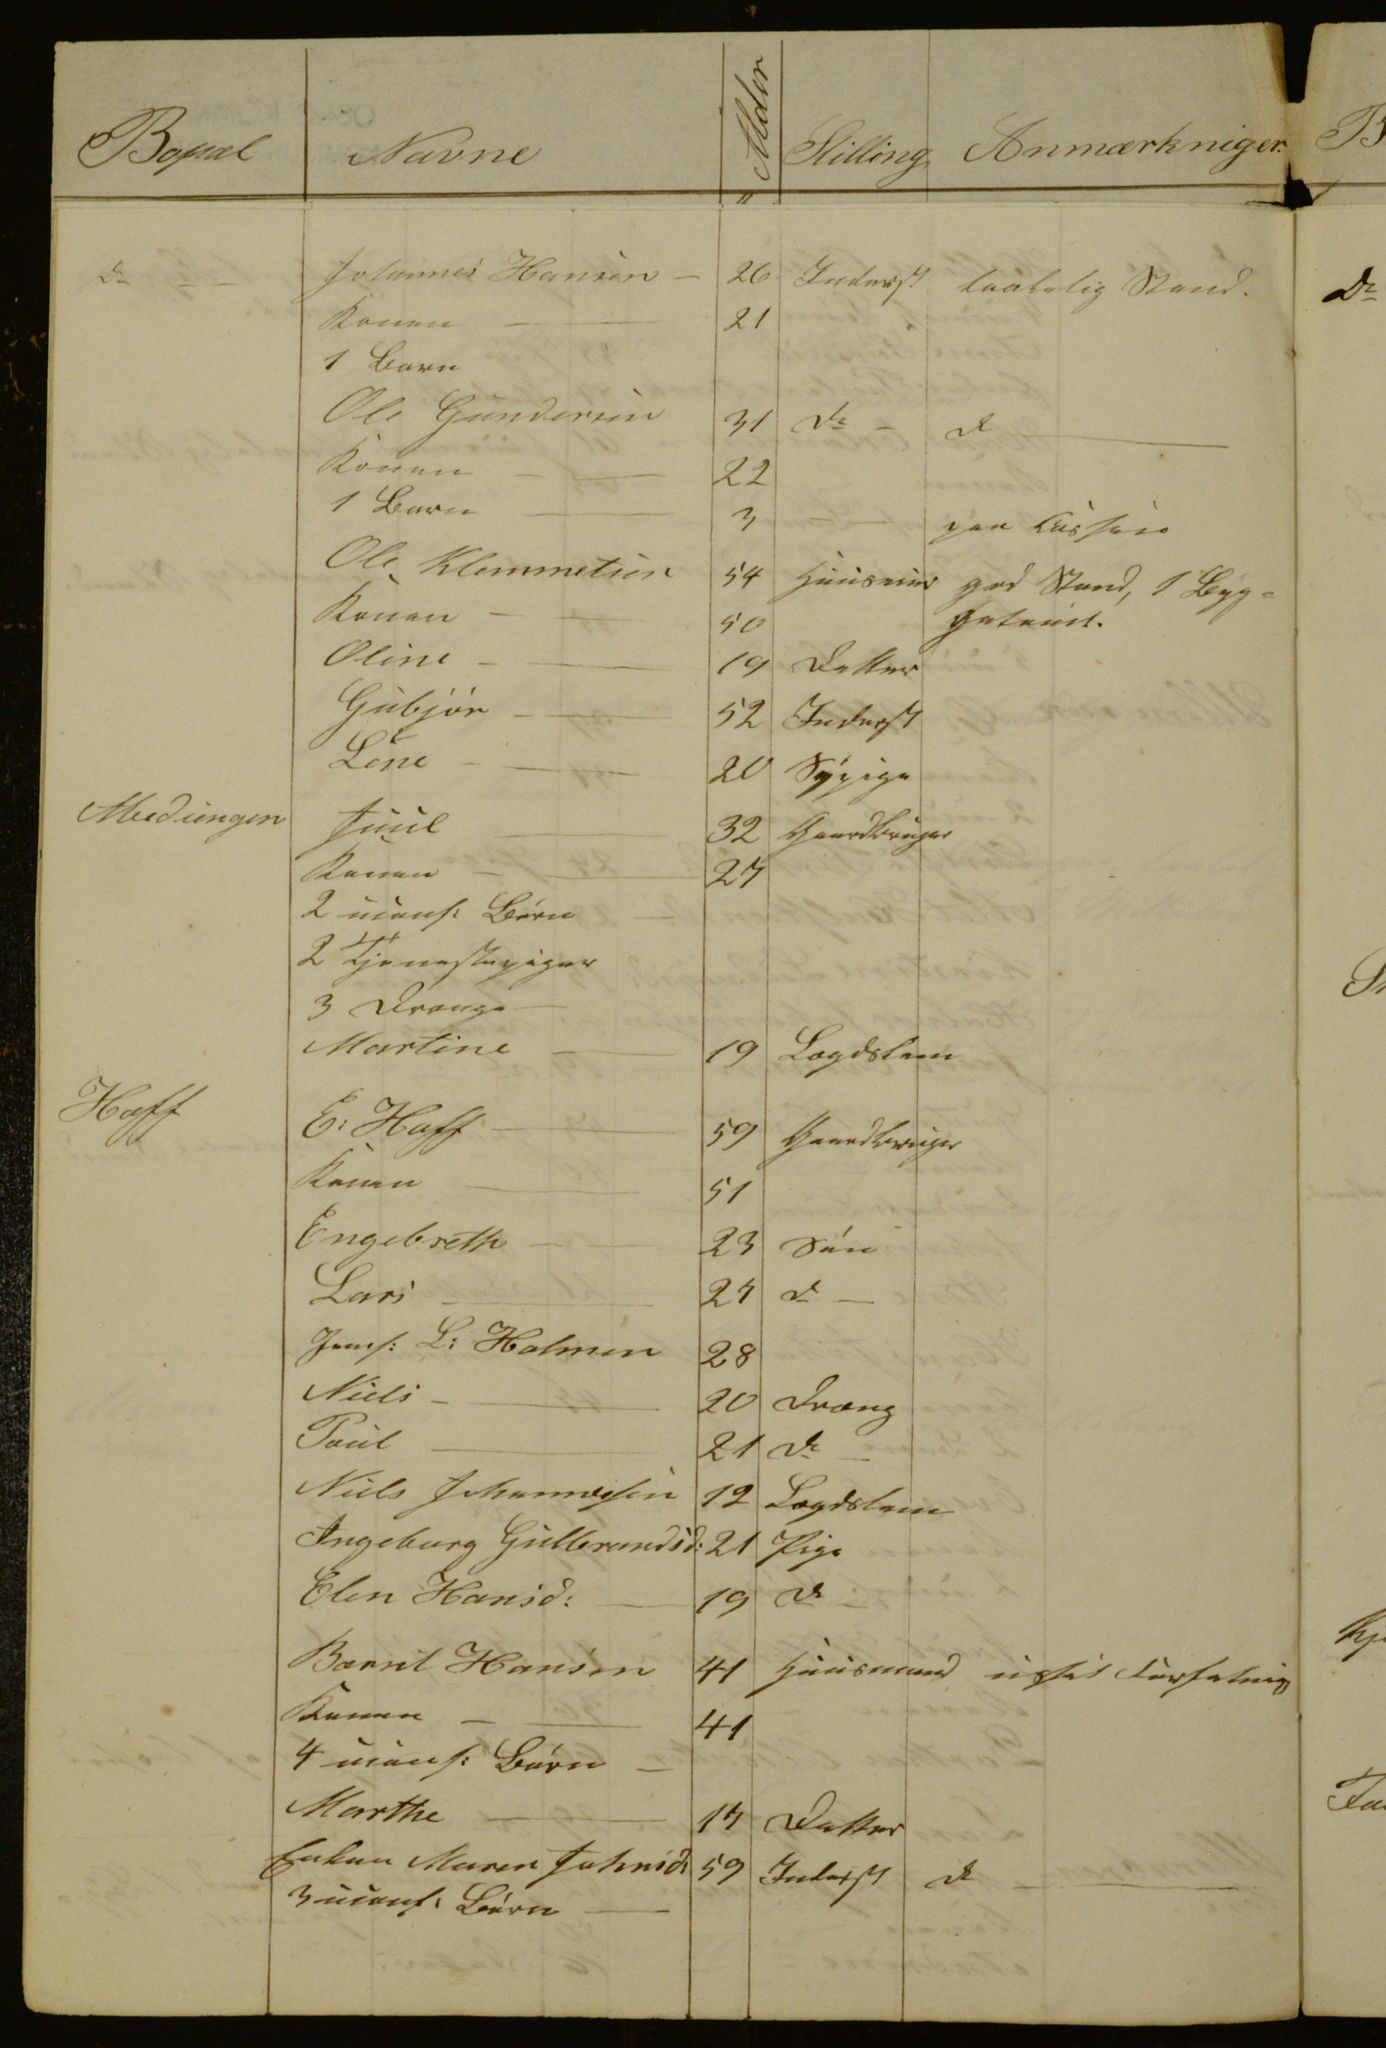 Bopæl Navne Alder Stilling Anmærkniger
Do - - Johannes Hansen - 26 Inderst taalelig Stand.
Konen - 21
1 Barn
Ole Gundersen 31 Do - Do
Konen - 22
1 Barn 3 - - paa
Ole Klemmetsen 54 Huusm god Stand, 1 Byg-
Konen - 50
Oline - 19 Datter
Gubjør - 52 Inderst
Lene - 20 Sypige
Juul 32 Gaardbruger
Konen - 27
2 uconf: Børn
2 Tjenestepiger
3 Drenge
Martine 19 Lægdslem
Hoff E: Hoff 59 Gaardbruger
Konen 51
Engebreth 23 Søn
Lars 24 Do -
L: Holmen 28
Niels - 20 Dreng
Poul 21 Do -
Niels Johannesen 12 Lægdslem
Ingeborg Gulbrandsd: 21 Pige
Elen Hansd: 19 Do
Bernt Hansen 41 Huusmand ussel Forfatning
Konen - 41
4 uconf: Børn -
Marthe 17 Datter
Enken Maren Johnsd: 59 Inderst Do
3 uconf: Børn